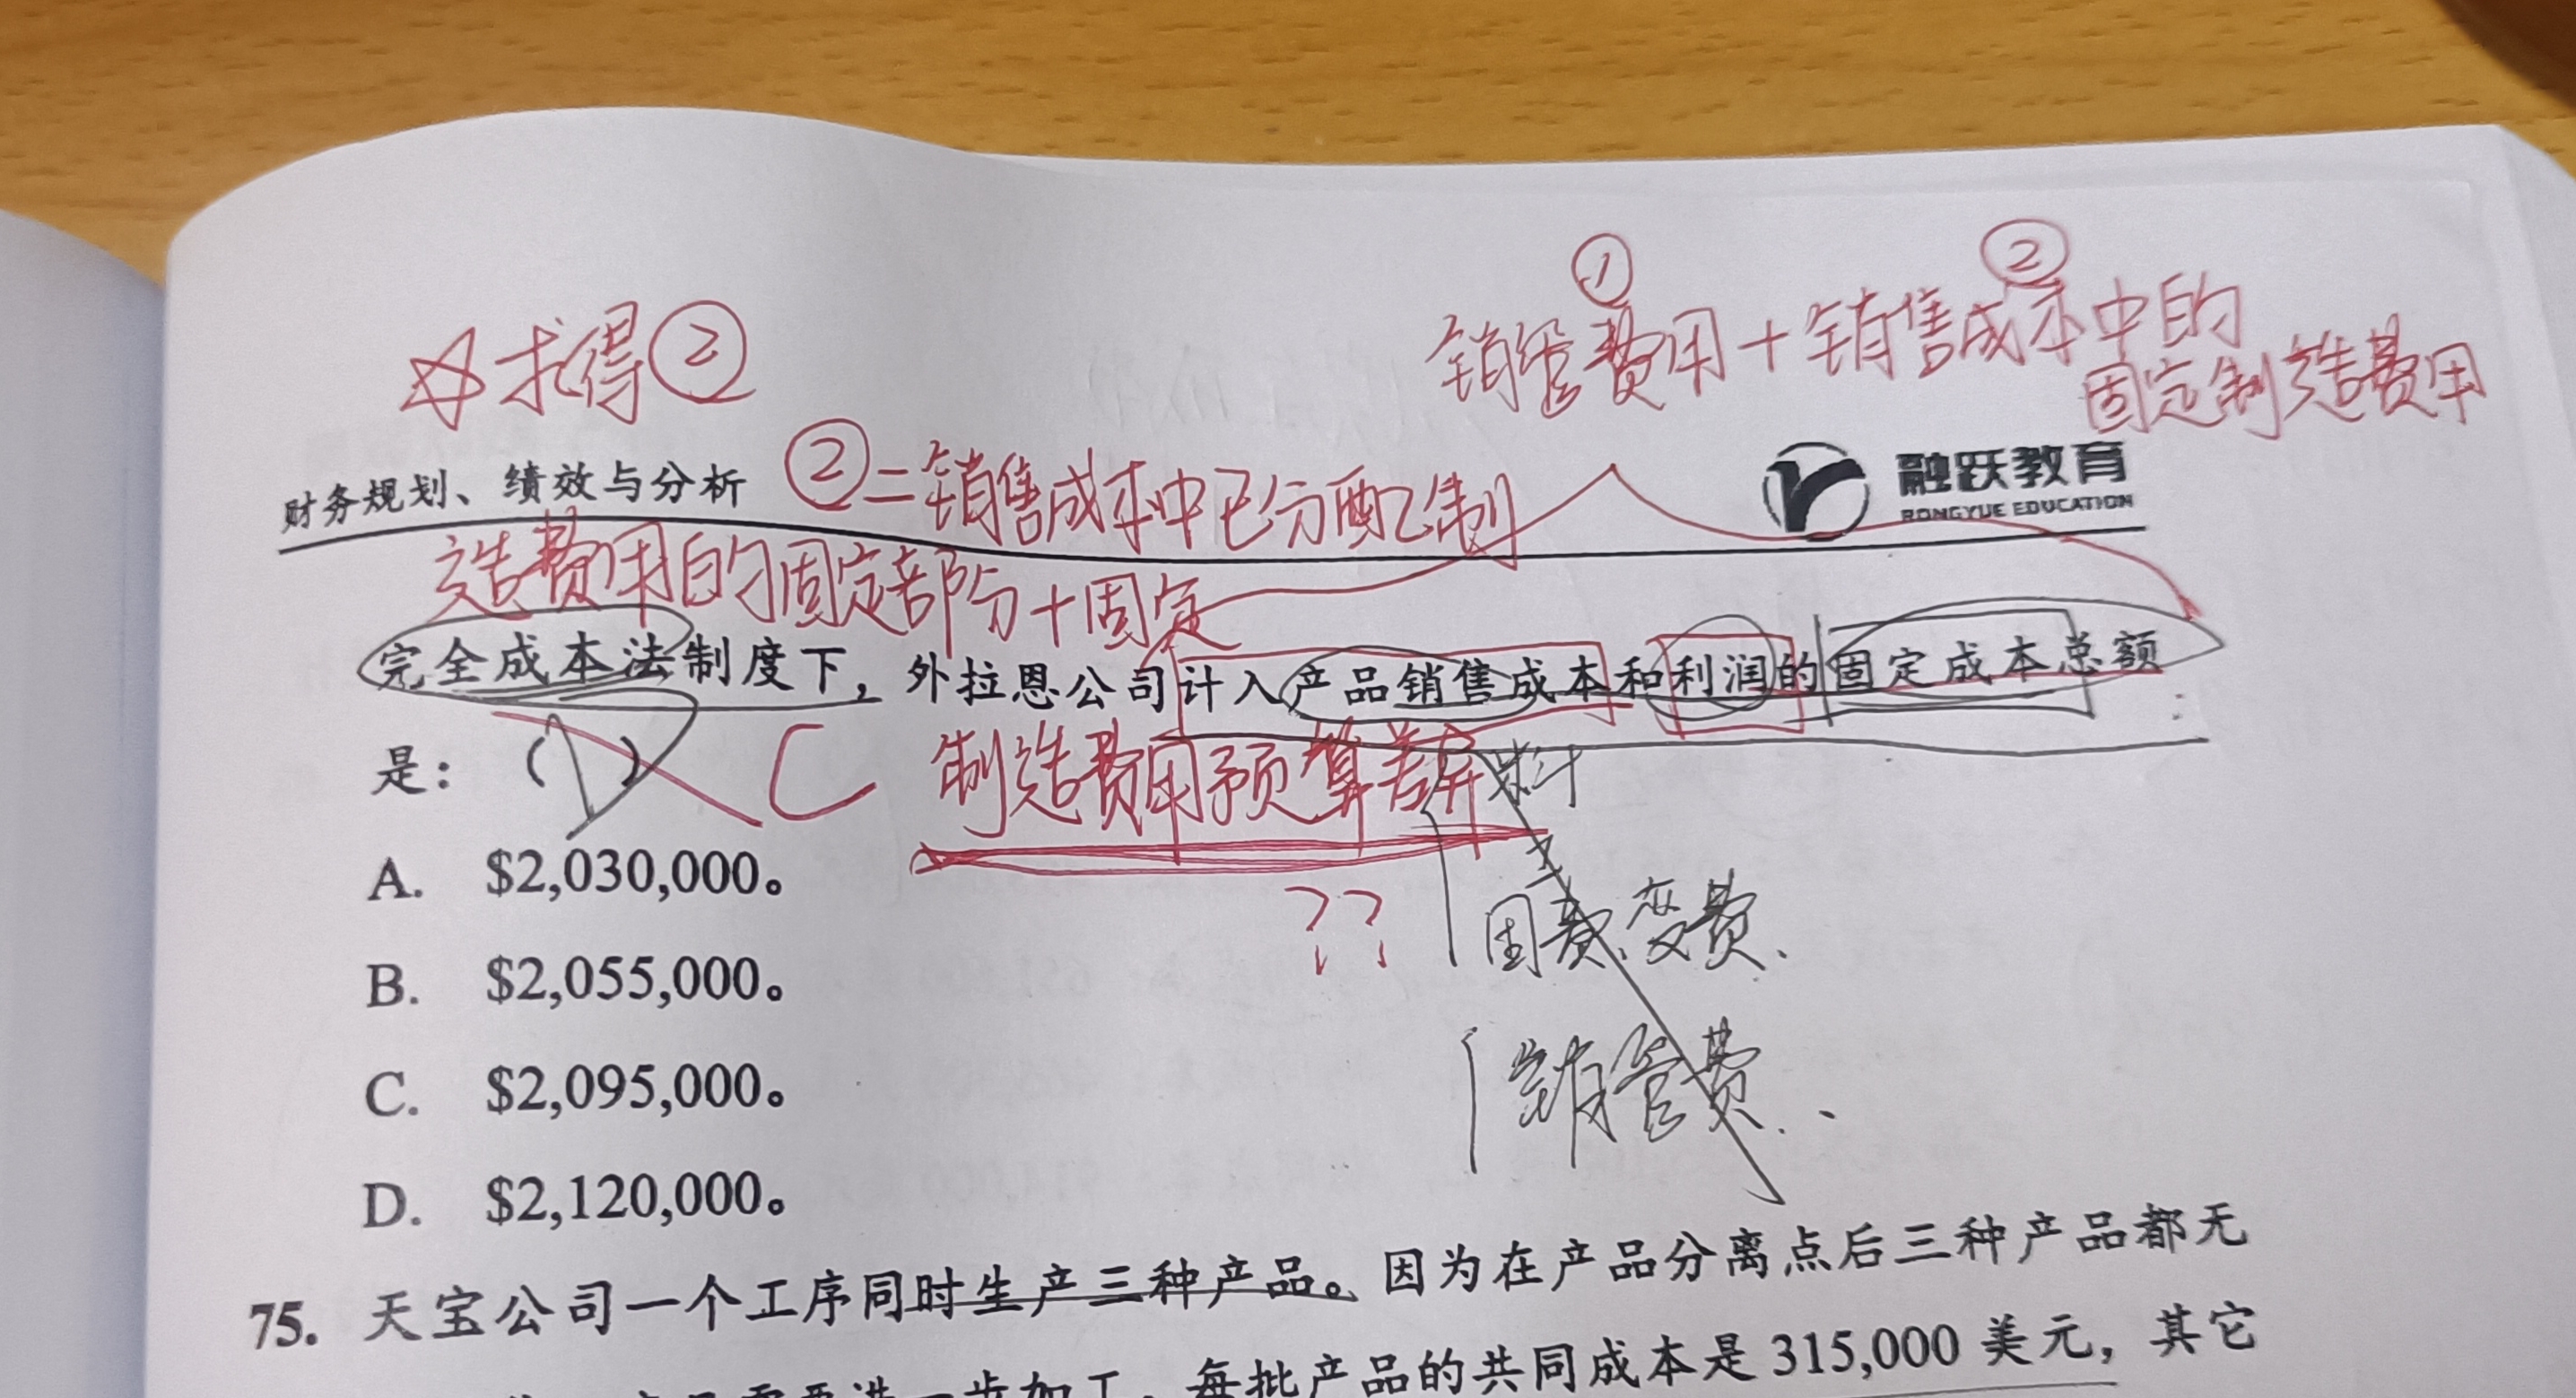 ① ②
销管费用+销售成本中的
固定制造费用
☆求得②
融跃教育
RONGYUE EDUCATION
财务规划、绩效与分析
②=销售成本中已分配制
造费用的固定部分+固定
完全成本法制度下，外拉恩公司计入产品销售成本和利润的固定成本总额
是：（D） C 制造费用预算差异 料
工
A. $2,030,000。
?? 固费、变费、
B. $2,055,000。
销管费、
C. $2,095,000。
D. $2,120,000。
75. 天宝公司一个工序同时生产三种产品。因为在产品分离点后三种产品都无
进一步加工，每批产品的共同成本是 315,000 美元，其它